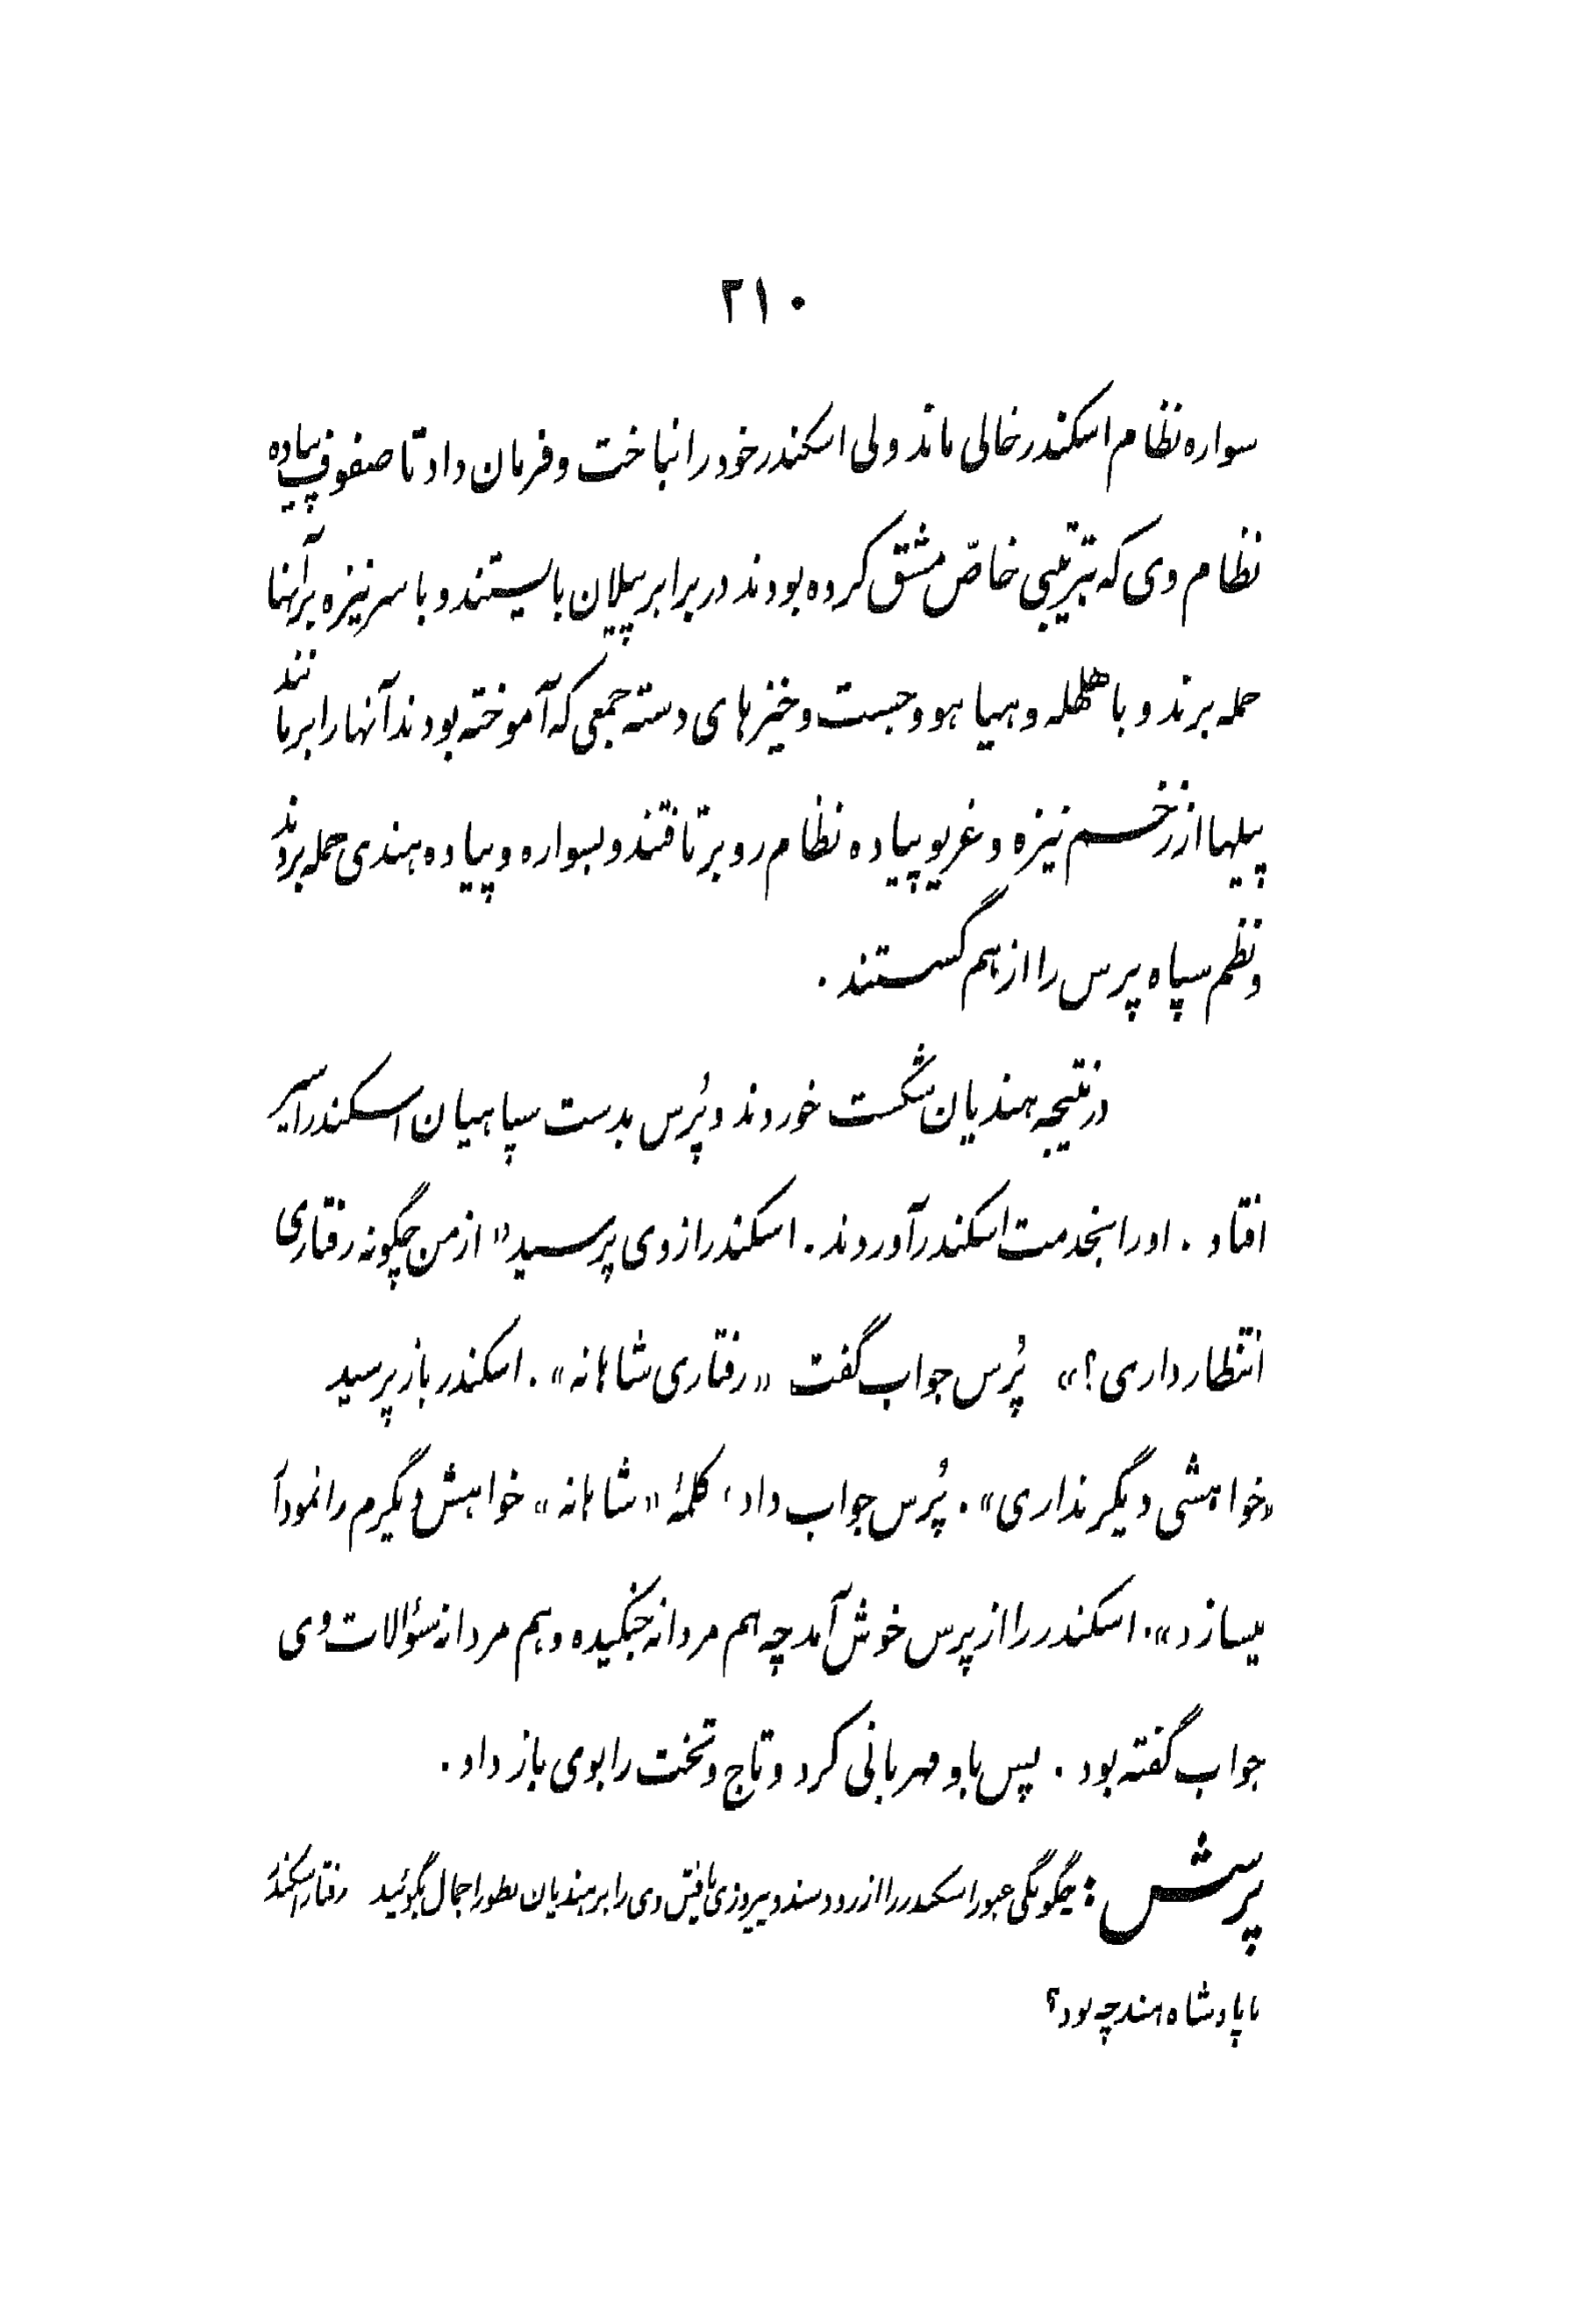 ۲۱۰
سواره نظام اسکندر خالی ماند ولی اسکندر خود را نباخت و فرمان داد تا صفوف پیاده
نظام وی که بترتیبی خاصّ مشق کرده بودند در برابر پیلان بایستند و با سر نیزه برآنها
حمله برند و با هلهله و هیاهو و جست و خیزهای دسته جمعی که آموخته بودند آنها را برمانند
پیلها از زخم نیزه و غریو پیاده نظام رو برتافتند و بسواره و پیاده هندی حمله بردند
و نظم سپاه پرس را از هم گسستند .
در نتیجه هندیان شکست خوردند و پُرس بدست سپاهیان اسکندر اسیر
افتاد . او را بخدمت اسکندر آوردند . اسکندر از وی پرسید « از من چگونه رفتاری
انتظار داری ؟ » پُرس جواب گفت « رفتاری شاهانه » . اسکندر باز پرسید
« خواهشی دیگر نداری » . پُرس جواب داد ، کلمهٔ « شاهانه » خواهش دیگرم را نمودار
میسازد » . اسکندر را از پرس خوش آمد چه هم مردانه جنگیده و هم مردانه سؤالات وی
جواب گفته بود . پس باو مهربانی کرد و تاج و تخت را بوی باز داد .
پرسش : چگونگی عبور اسکندر را از رود سند و پیروزی یافتن وی را بر هندیان بطور اجمال بگوئید رفتار اسکندر
با پادشاه هند چه بود ؟